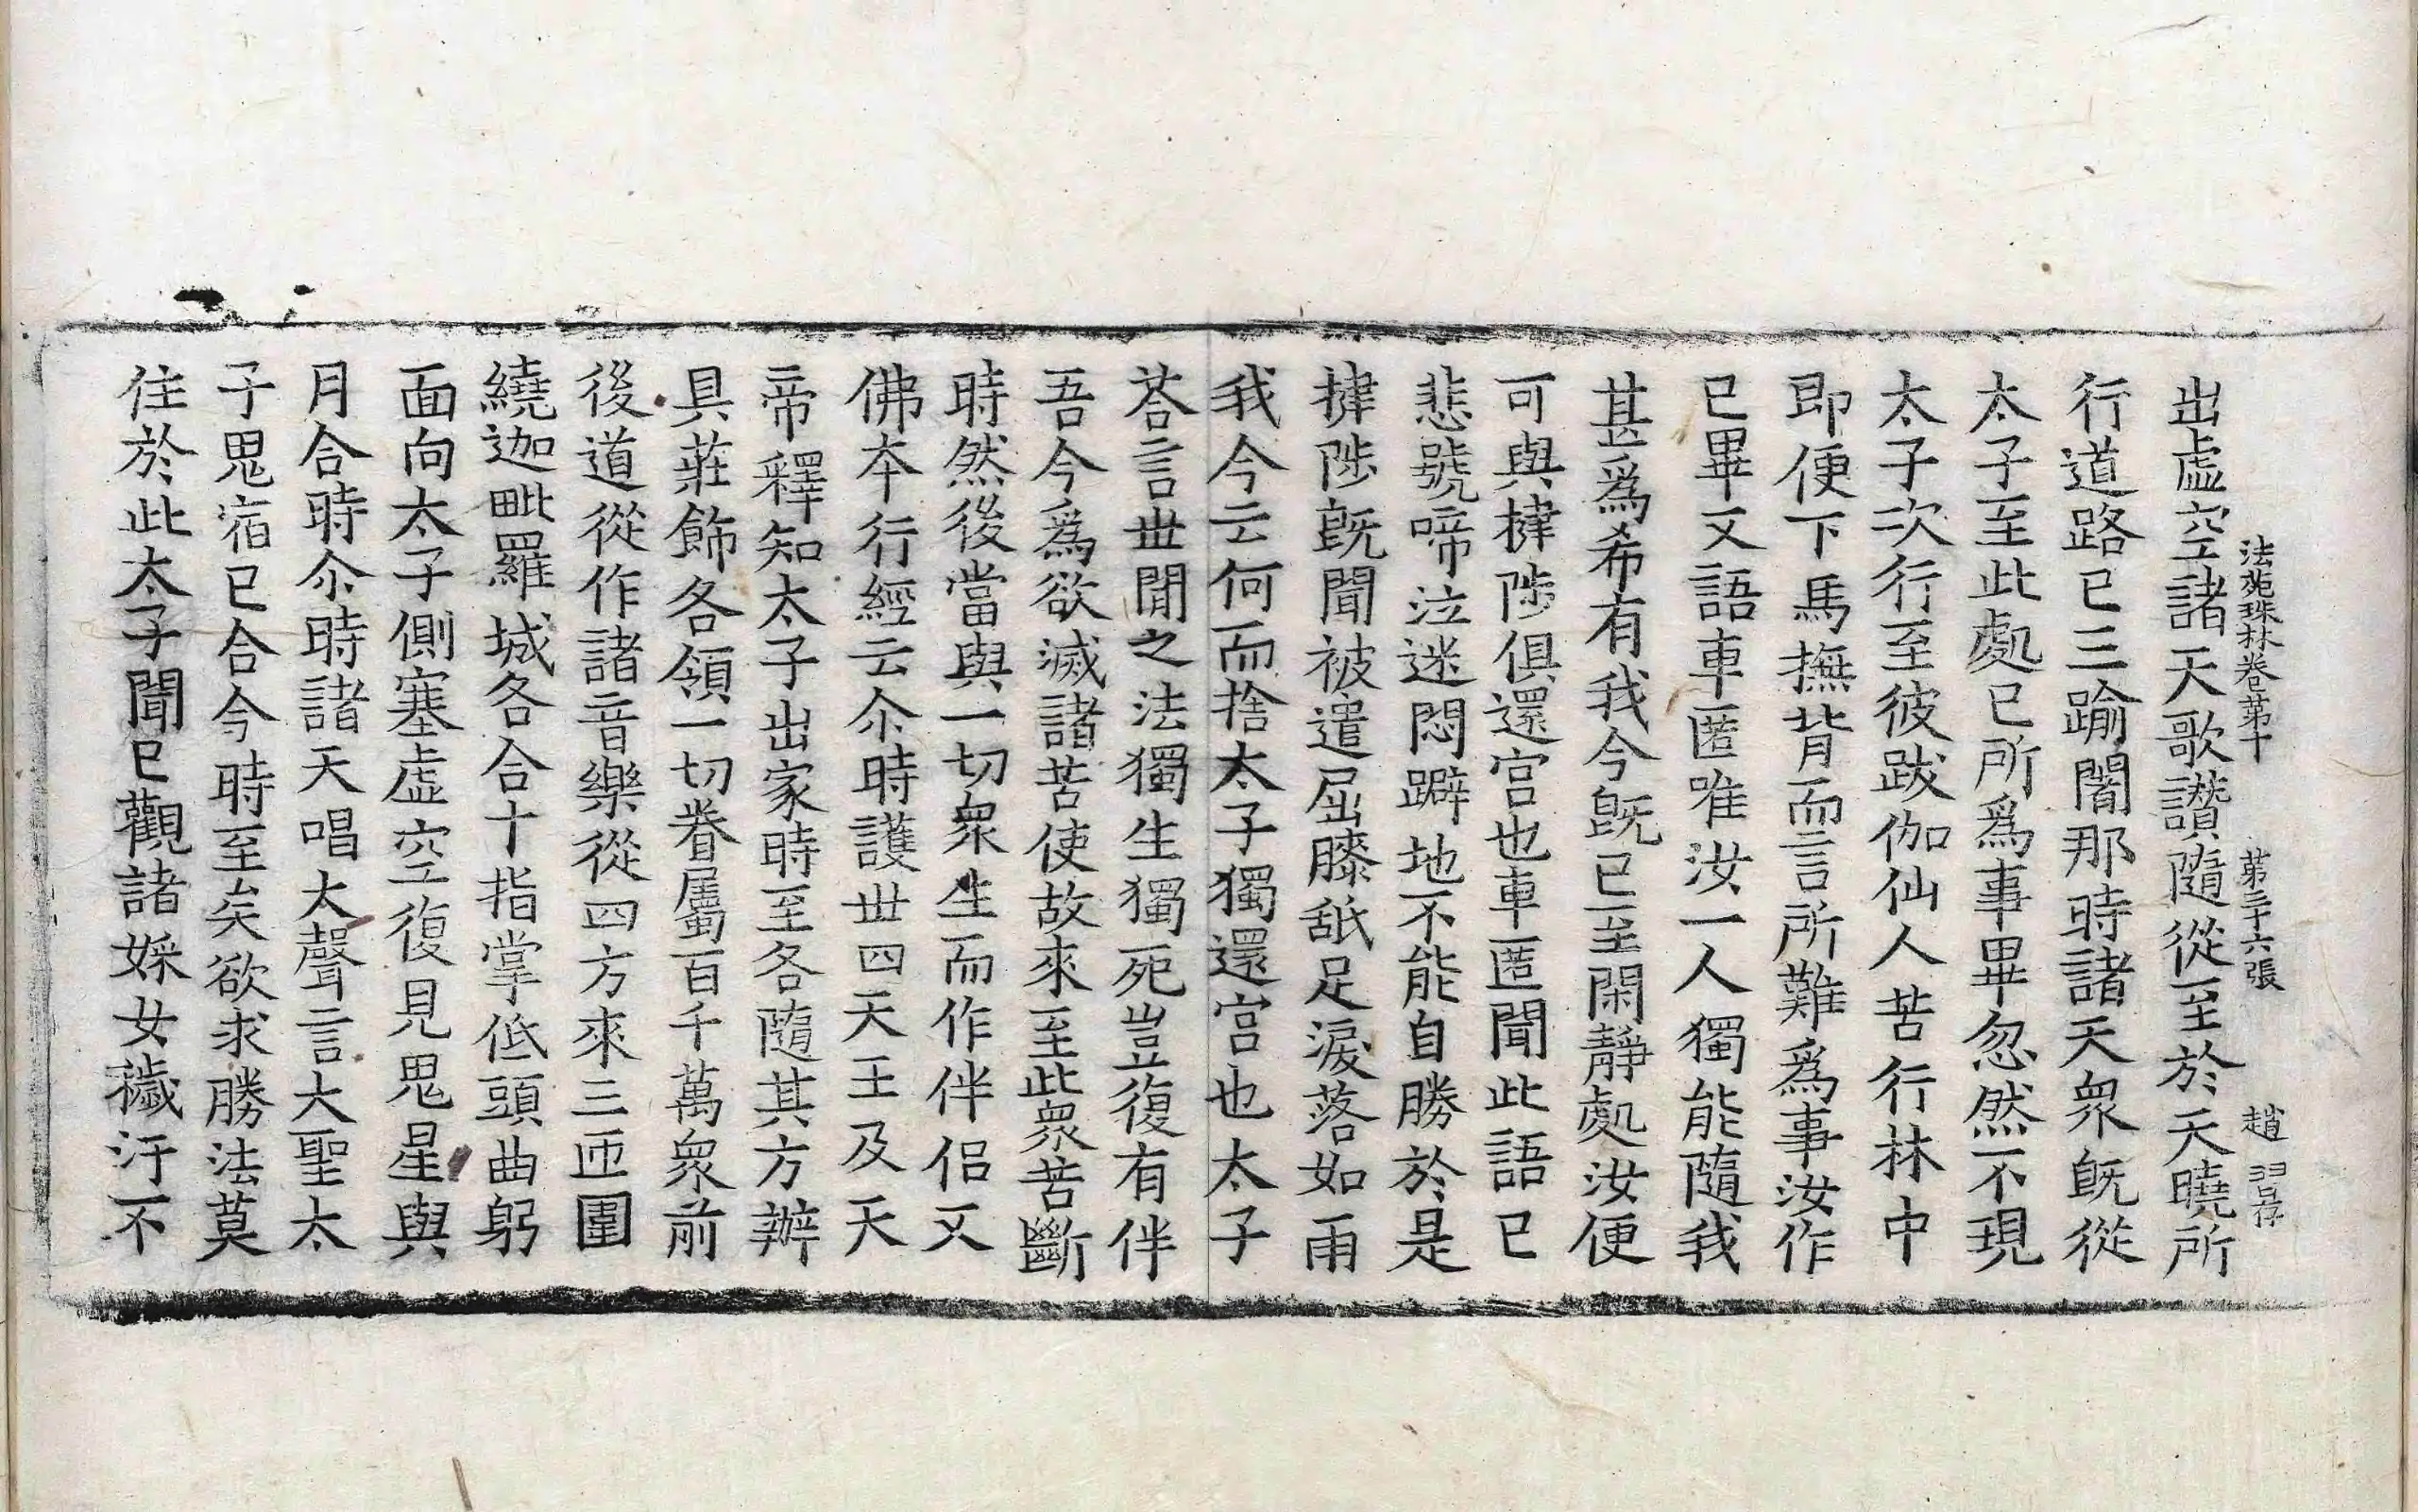 法苑珠林卷第十 第三十六張 趙
出虛空諸天歌讚隨從至於天曉所
行道路已三踰闍那時諸天衆旣從
太子至此處已所爲事畢忽然不現
太子次行至彼跋伽仙人苦行林中
即便下馬撫背而言所難爲事汝作
已畢又語車匿唯汝一人獨能隨我
甚爲希有我今旣已至閑靜處汝便
可與揵陟俱還宮也車匿聞此語已
悲號啼泣迷悶躃地不能自勝於是
揵陟旣聞被遣屈膝舐足淚落如雨
我今云何而捨太子獨還宮也太子
荅言世閒之法獨生獨死豈復有伴
吾今爲欲滅諸苦使故來至此衆苦斷
時然後當與一切衆生而作伴侶又
佛本行經云尒時護世四天王及天
帝釋知太子出家時至各隨其方辦
具莊飾各領一切眷屬百千萬衆前
後道從作諸音樂從四方來三匝圍
繞迦毗羅城各合十指掌低頭曲躬
面向太子側塞虛空復見鬼星與
月合時尒時諸天唱大聲言大聖太
子鬼宿已合今時至矣欲求勝法莫
住於此太子聞已觀諸婇女穢汙不